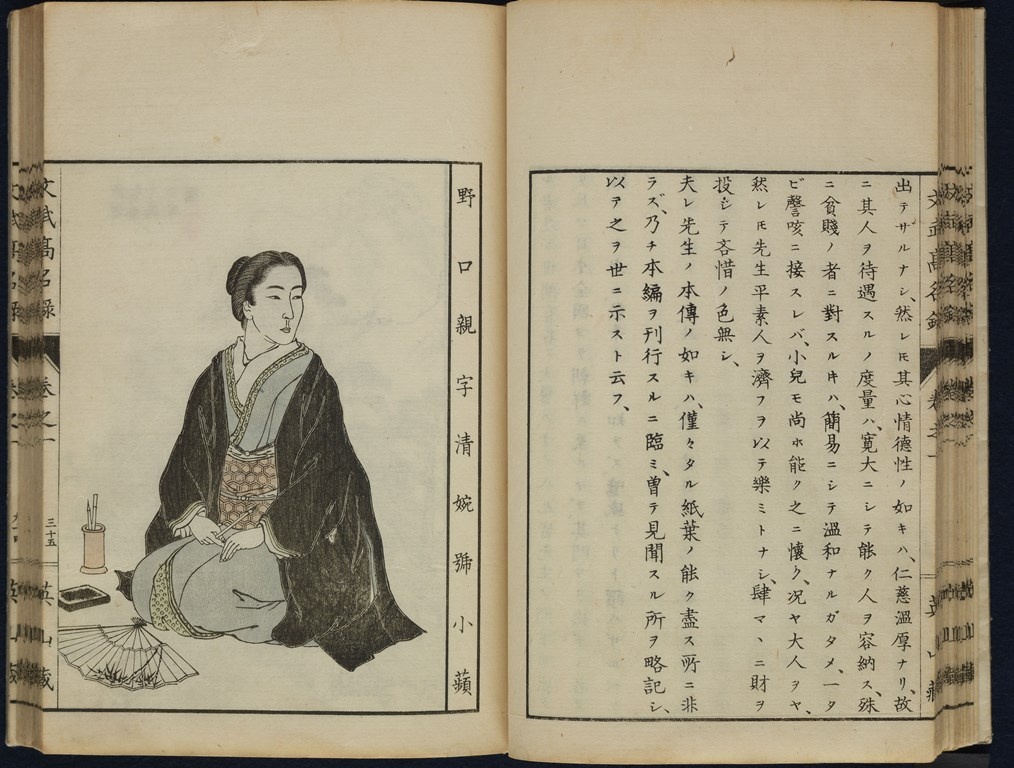 出テザルナシ、然レ𪜈其心情德性ノ如キハ、仁慈溫厚ナリ、故
ニ其人ヲ待遇スルノ度量ハ、寛大ニシテ能ク人ヲ容納ス、殊
ニ貧賤ノ者ニ對スルキハ、簡易ニシテ溫和ナルガタメ、一タ
ビ謦咳ニ接スレバ、小兒モ尚ホ能ク之ニ懷ク、况ヤ大人ヲヤ、
然レ𪜈先生平素人ヲ濟フヲ以テ樂ミトナシ、肆マヽニ財ヲ
投シテ吝惜ノ色無シ、
夫レ先生ノ本傳ノ如キハ、僅々タル紙葉ノ能ク盡ス所ニ非
ラズ、乃チ本編ヲ刊行スルニ臨ミ、曽テ見聞スル所ヲ略記シ、
以テ之ヲ世ニ示スト云フ、
野口親字清婉號小蘋
文武高名錄
卷之一
三十五
英山藏